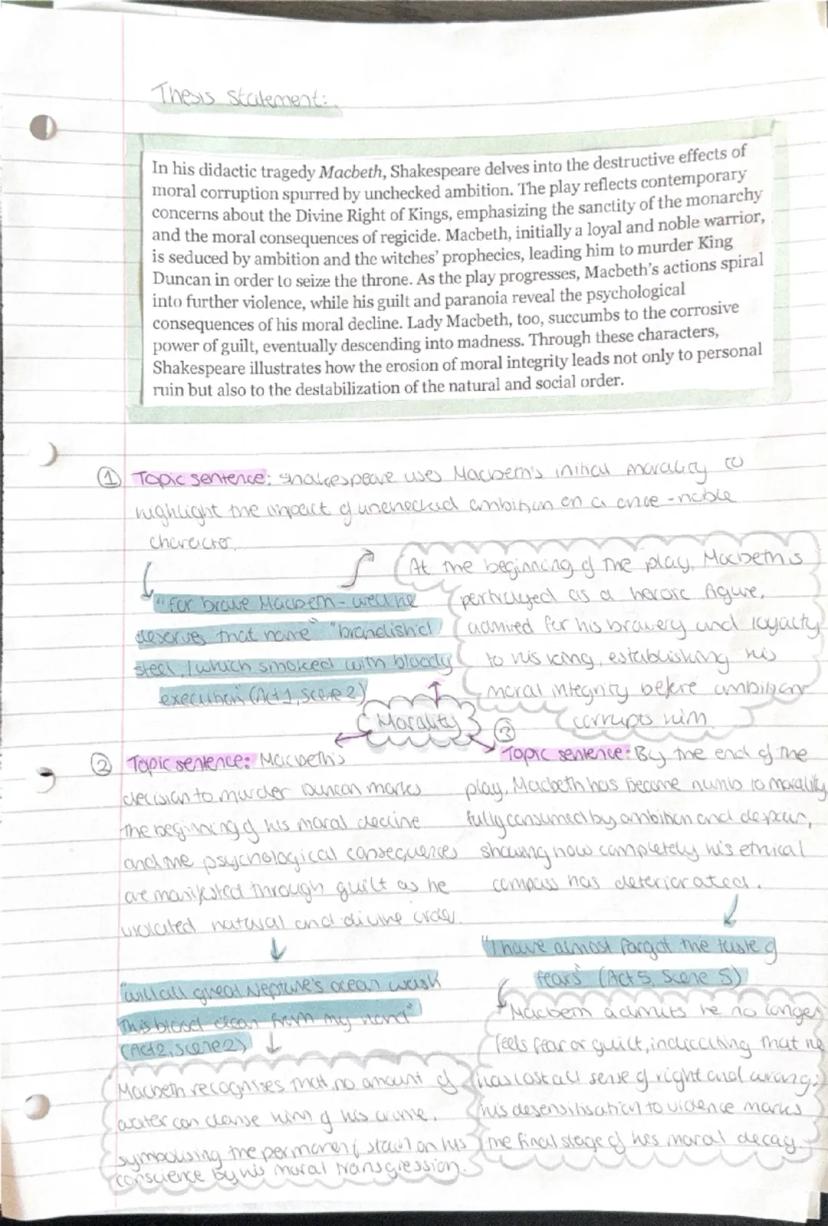 Thesis statement:
In his didactic tragedy Macbeth, Shakespeare delves into the destructive effects of
moral corruption spurred by unchecked ambition. The play reflects contemporary
concerns about the Divine Right of Kings, emphasizing the sanctity of the monarchy
and the moral consequences of regicide. Macbeth, initially a loyal and noble warrior,
is seduced by ambition and the witches' prophecies, leading him to murder King
Duncan in order to seize the throne. As the play progresses, Macbeth's actions spiral
into further violence, while his guilt and paranoia reveal the psychological
consequences of his moral decline. Lady Macbeth, too, succumbs to the corrosive
power of guilt, eventually descending into madness. Through these characters,
Shakespeare illustrates how the erosion of moral integrity leads not only to personal
ruin but also to the destabilization of the natural and social order.
① Topic sentence: Shakespeare uses Macbeth's initial morality to
highlight the impact of unchecked ambition on a once-noble
character.
"For brave Macbeth - well he
deserves that name" "brandish'd
steel, / which smoked with bloody
execution" (Act 1, Scene 2)
At the beginning of the play, Macbeth is
portrayed as a heroic figure,
admired for his bravery and loyalty
to his king, establishing his
moral integrity before ambition
corrupts him
Morality
② Topic sentence: Macbeth's
decision to murder Duncan marks
the beginning of his moral decline
and the psychological consequences
are manifested through guilt as he
violated natural and divine order.
"will all great Neptune's ocean wash
this blood clean from my hand"
(Act 2, Scene 2)
Macbeth recognises that no amount of
water can cleanse him of his crime,
symbolising the permanent stain on his
conscience by his moral transgression.
③ Topic sentence: By the end of the
play, Macbeth has become numb to morality,
fully consumed by ambition and despair,
showing how completely his ethical
compass has deteriorated.
"I have almost forgot the taste of
fears" (Act 5, Scene 5)
Macbeth admits he no longer
feels fear or guilt, indicating that he
has lost all sense of right and wrong;
his desensitisation to violence marks
the final stage of his moral decay